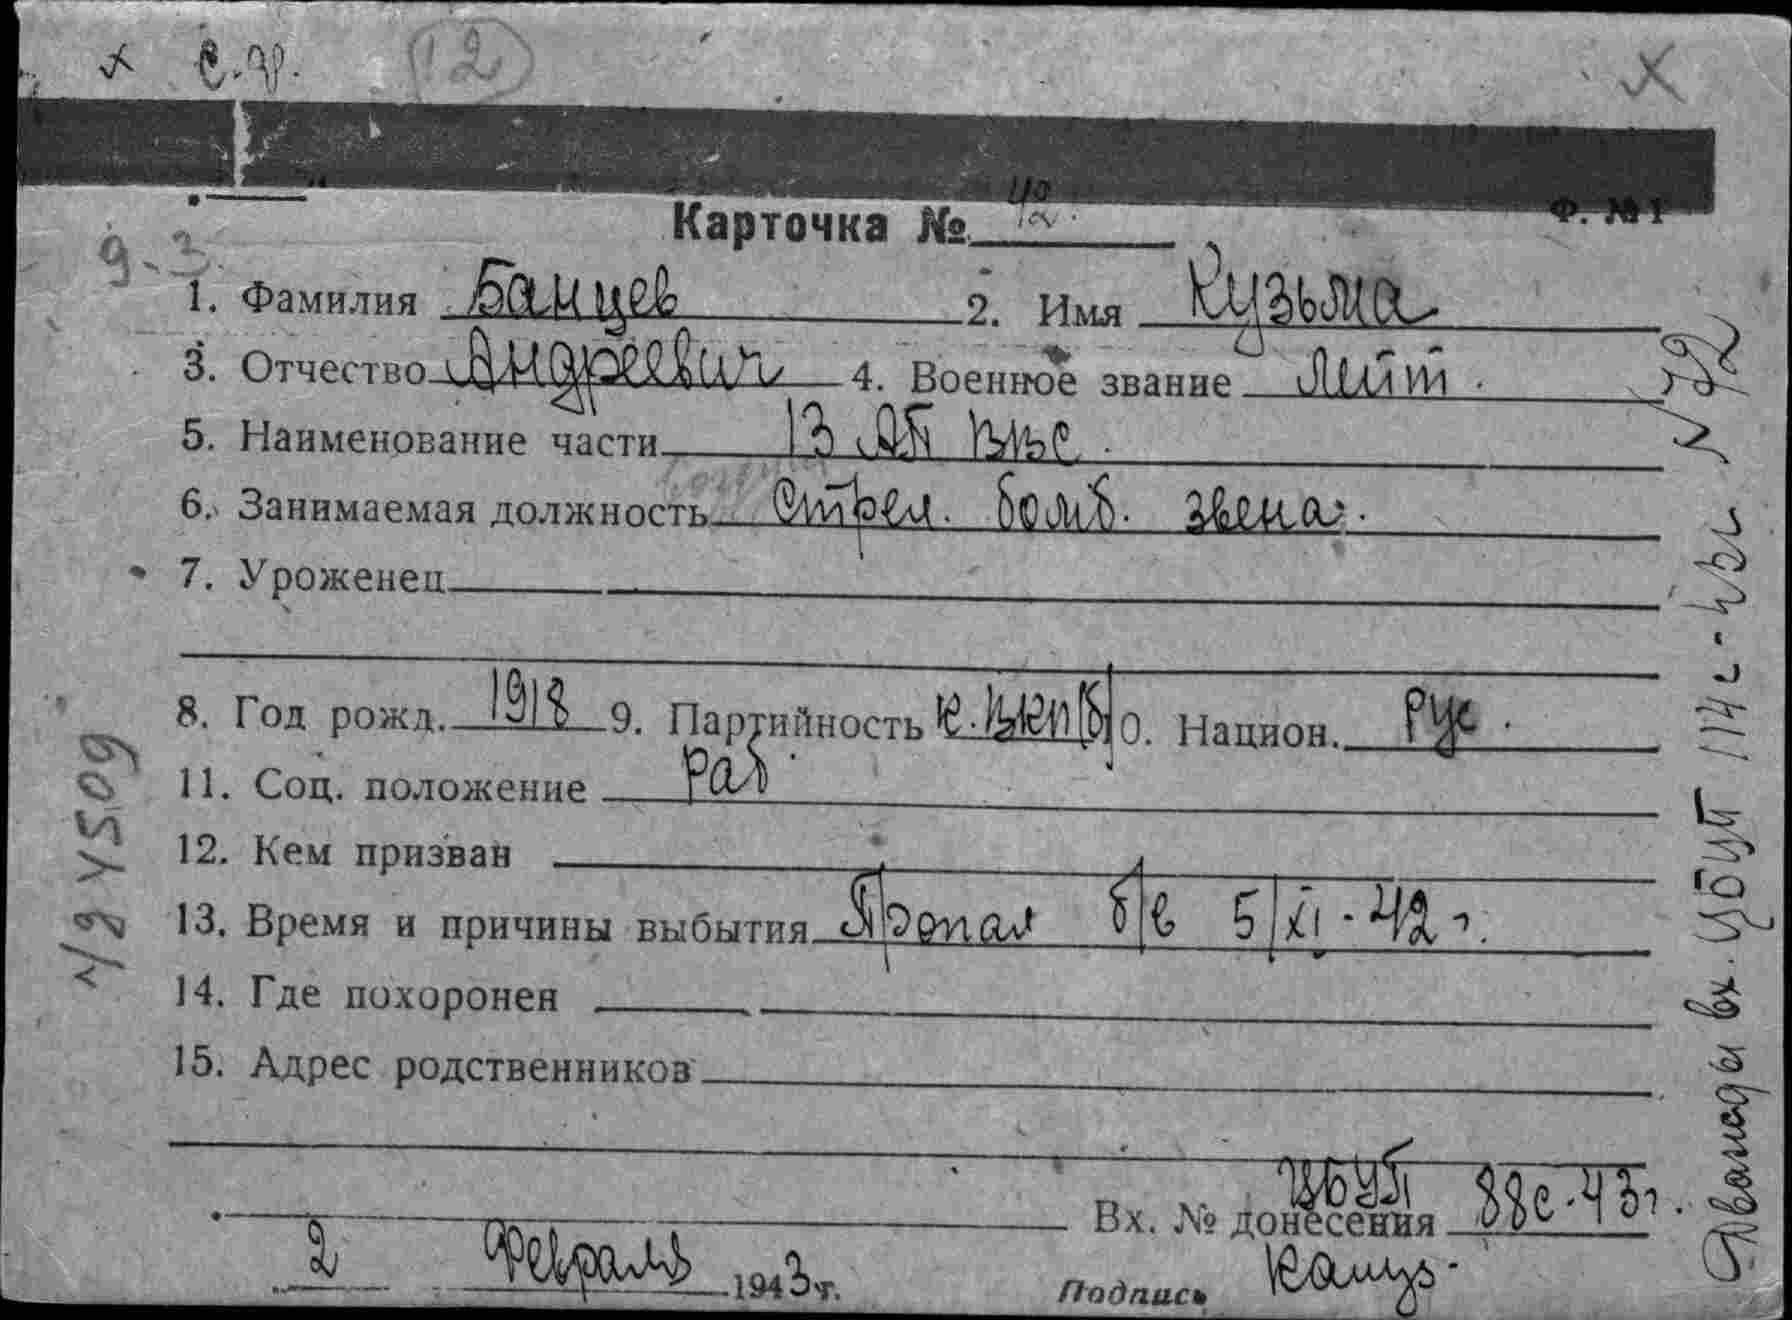 с.ф. 12
Ф. №1
Карточка № 42
д-3.
1. Фамилия Банцев 2. Имя Кузьма
3. Отчество Андреевич 4. Военное звание Лейт.
5. Наименование части 13 АП
6. Занимаемая должность Стрел. бомб. звена.
7. Уроженец
8. Год рожд. 1918 9. Партийность к. ВКП(б) 10. Национ. Рус.
11. Соц. положение Раб.
12. Кем призван
13. Время и причины выбытия Пропал б/в 5/XI-42 г.
14. Где похоронен
15. Адрес родственников
Вх. № донесения ЦБУП 88с-43г.
2 Февраль 1943 г.
Подпись